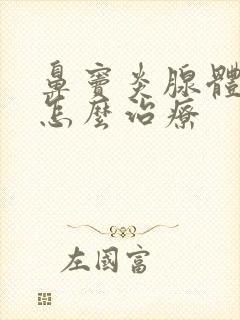 鼻竇炎腺體
怎麼治療
左國富